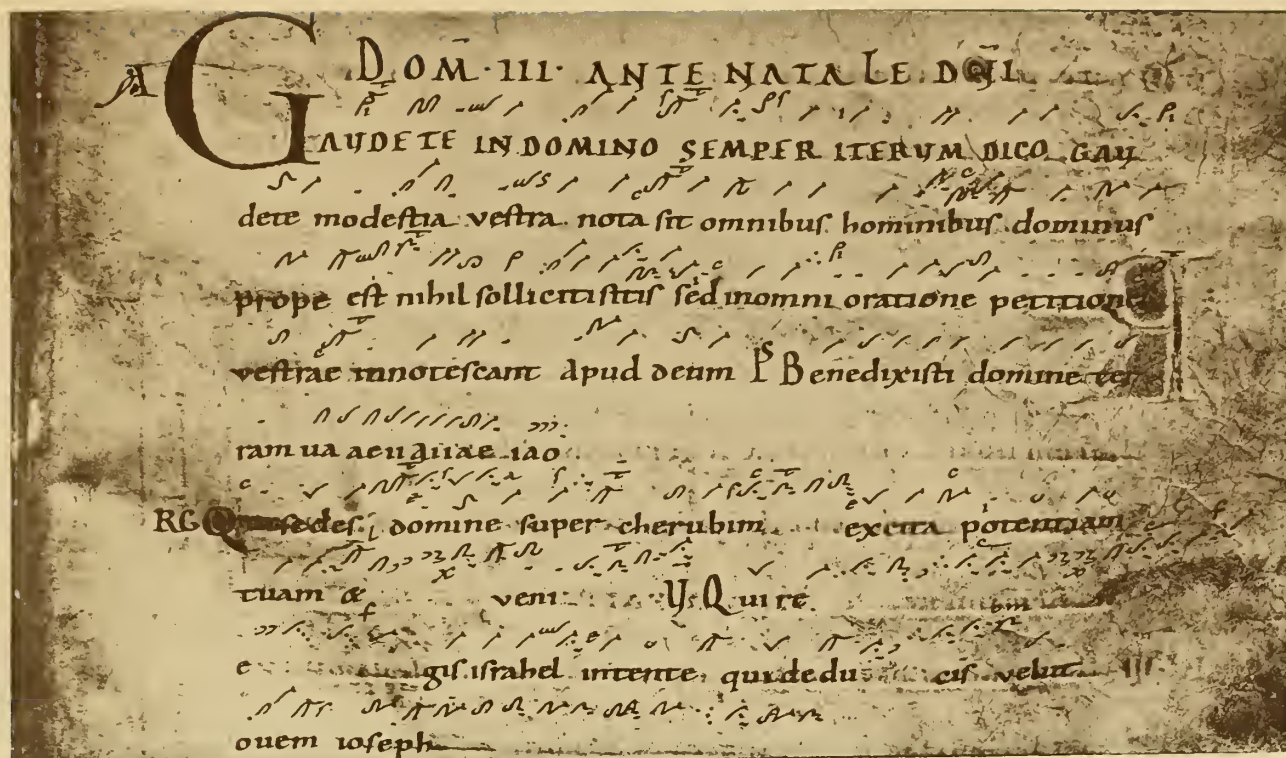 A DOM̄·III· ANTE NATALE DNĪ
GAUDETE IN DOMINO SEMPER ITERUM DICO GAU
dete modestia vestra nota sit omnibus hominibus dominus
prope est nihil solliciti sitis sed in omni oratione petitione
vestrae innotescant apud deum Ps Benedixisti domine ter
ram ua aeuquae iao
RG Qui sedes domine super cherubim excita potentiam
tuam & veni V Qui re
e gis israhel intente qui deducis velut
ovem ioseph